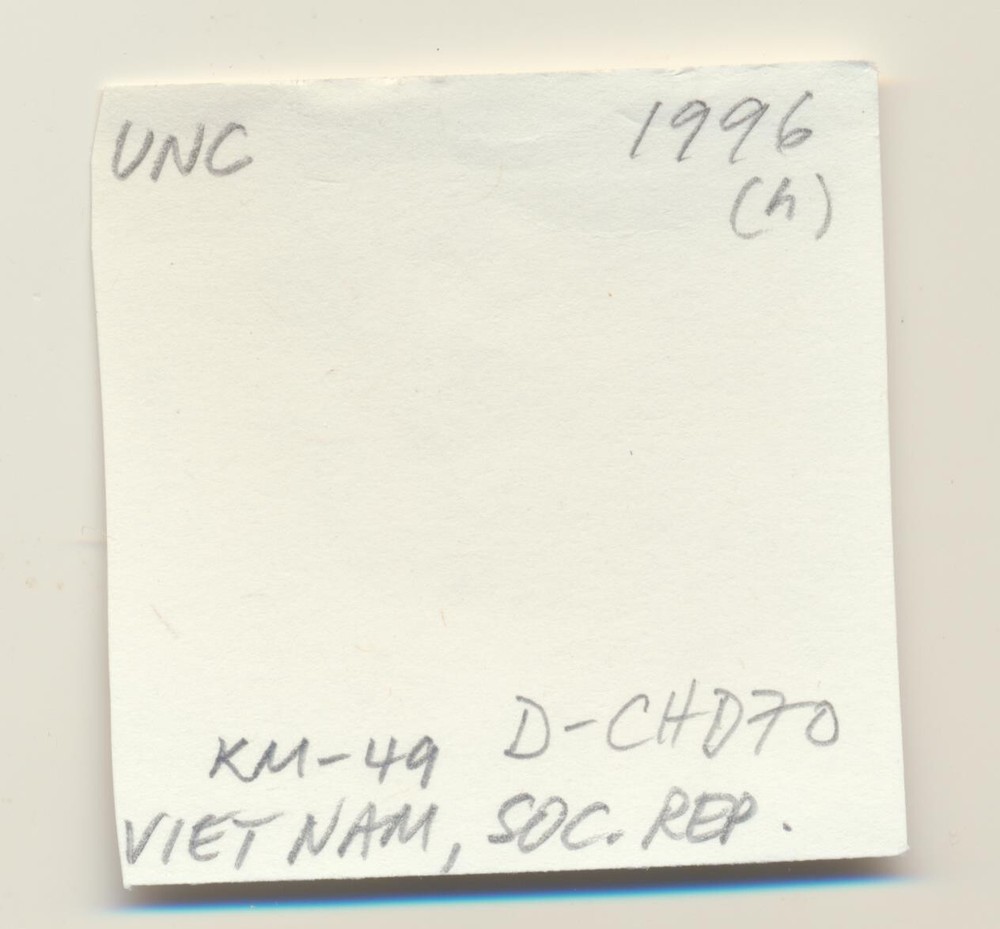 UNC 1996
(h)
KM-49 D-CHD70
VIET NAM, SOC. REP.